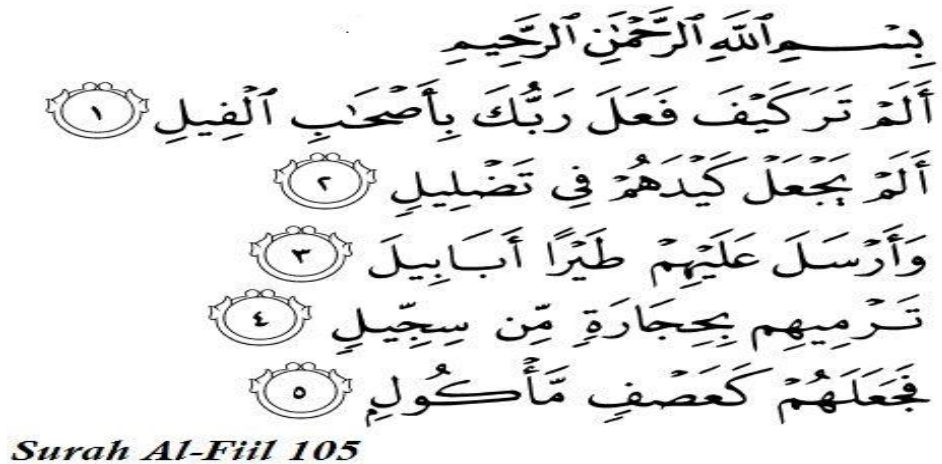 بِسْمِ ٱللَّهِ ٱلرَّحْمَٰنِ ٱلرَّحِيمِ
أَلَمْ تَرَ كَيْفَ فَعَلَ رَبُّكَ بِأَصْحَٰبِ ٱلْفِيلِ ١
أَلَمْ يَجْعَلْ كَيْدَهُمْ فِى تَضْلِيلٍ ٢
وَأَرْسَلَ عَلَيْهِمْ طَيْرًا أَبَابِيلَ ٣
تَرْمِيهِم بِحِجَارَةٍ مِّن سِجِّيلٍ ٤
فَجَعَلَهُمْ كَعَصْفٍ مَّأْكُولٍ ٥
Surah Al-Fiil 105